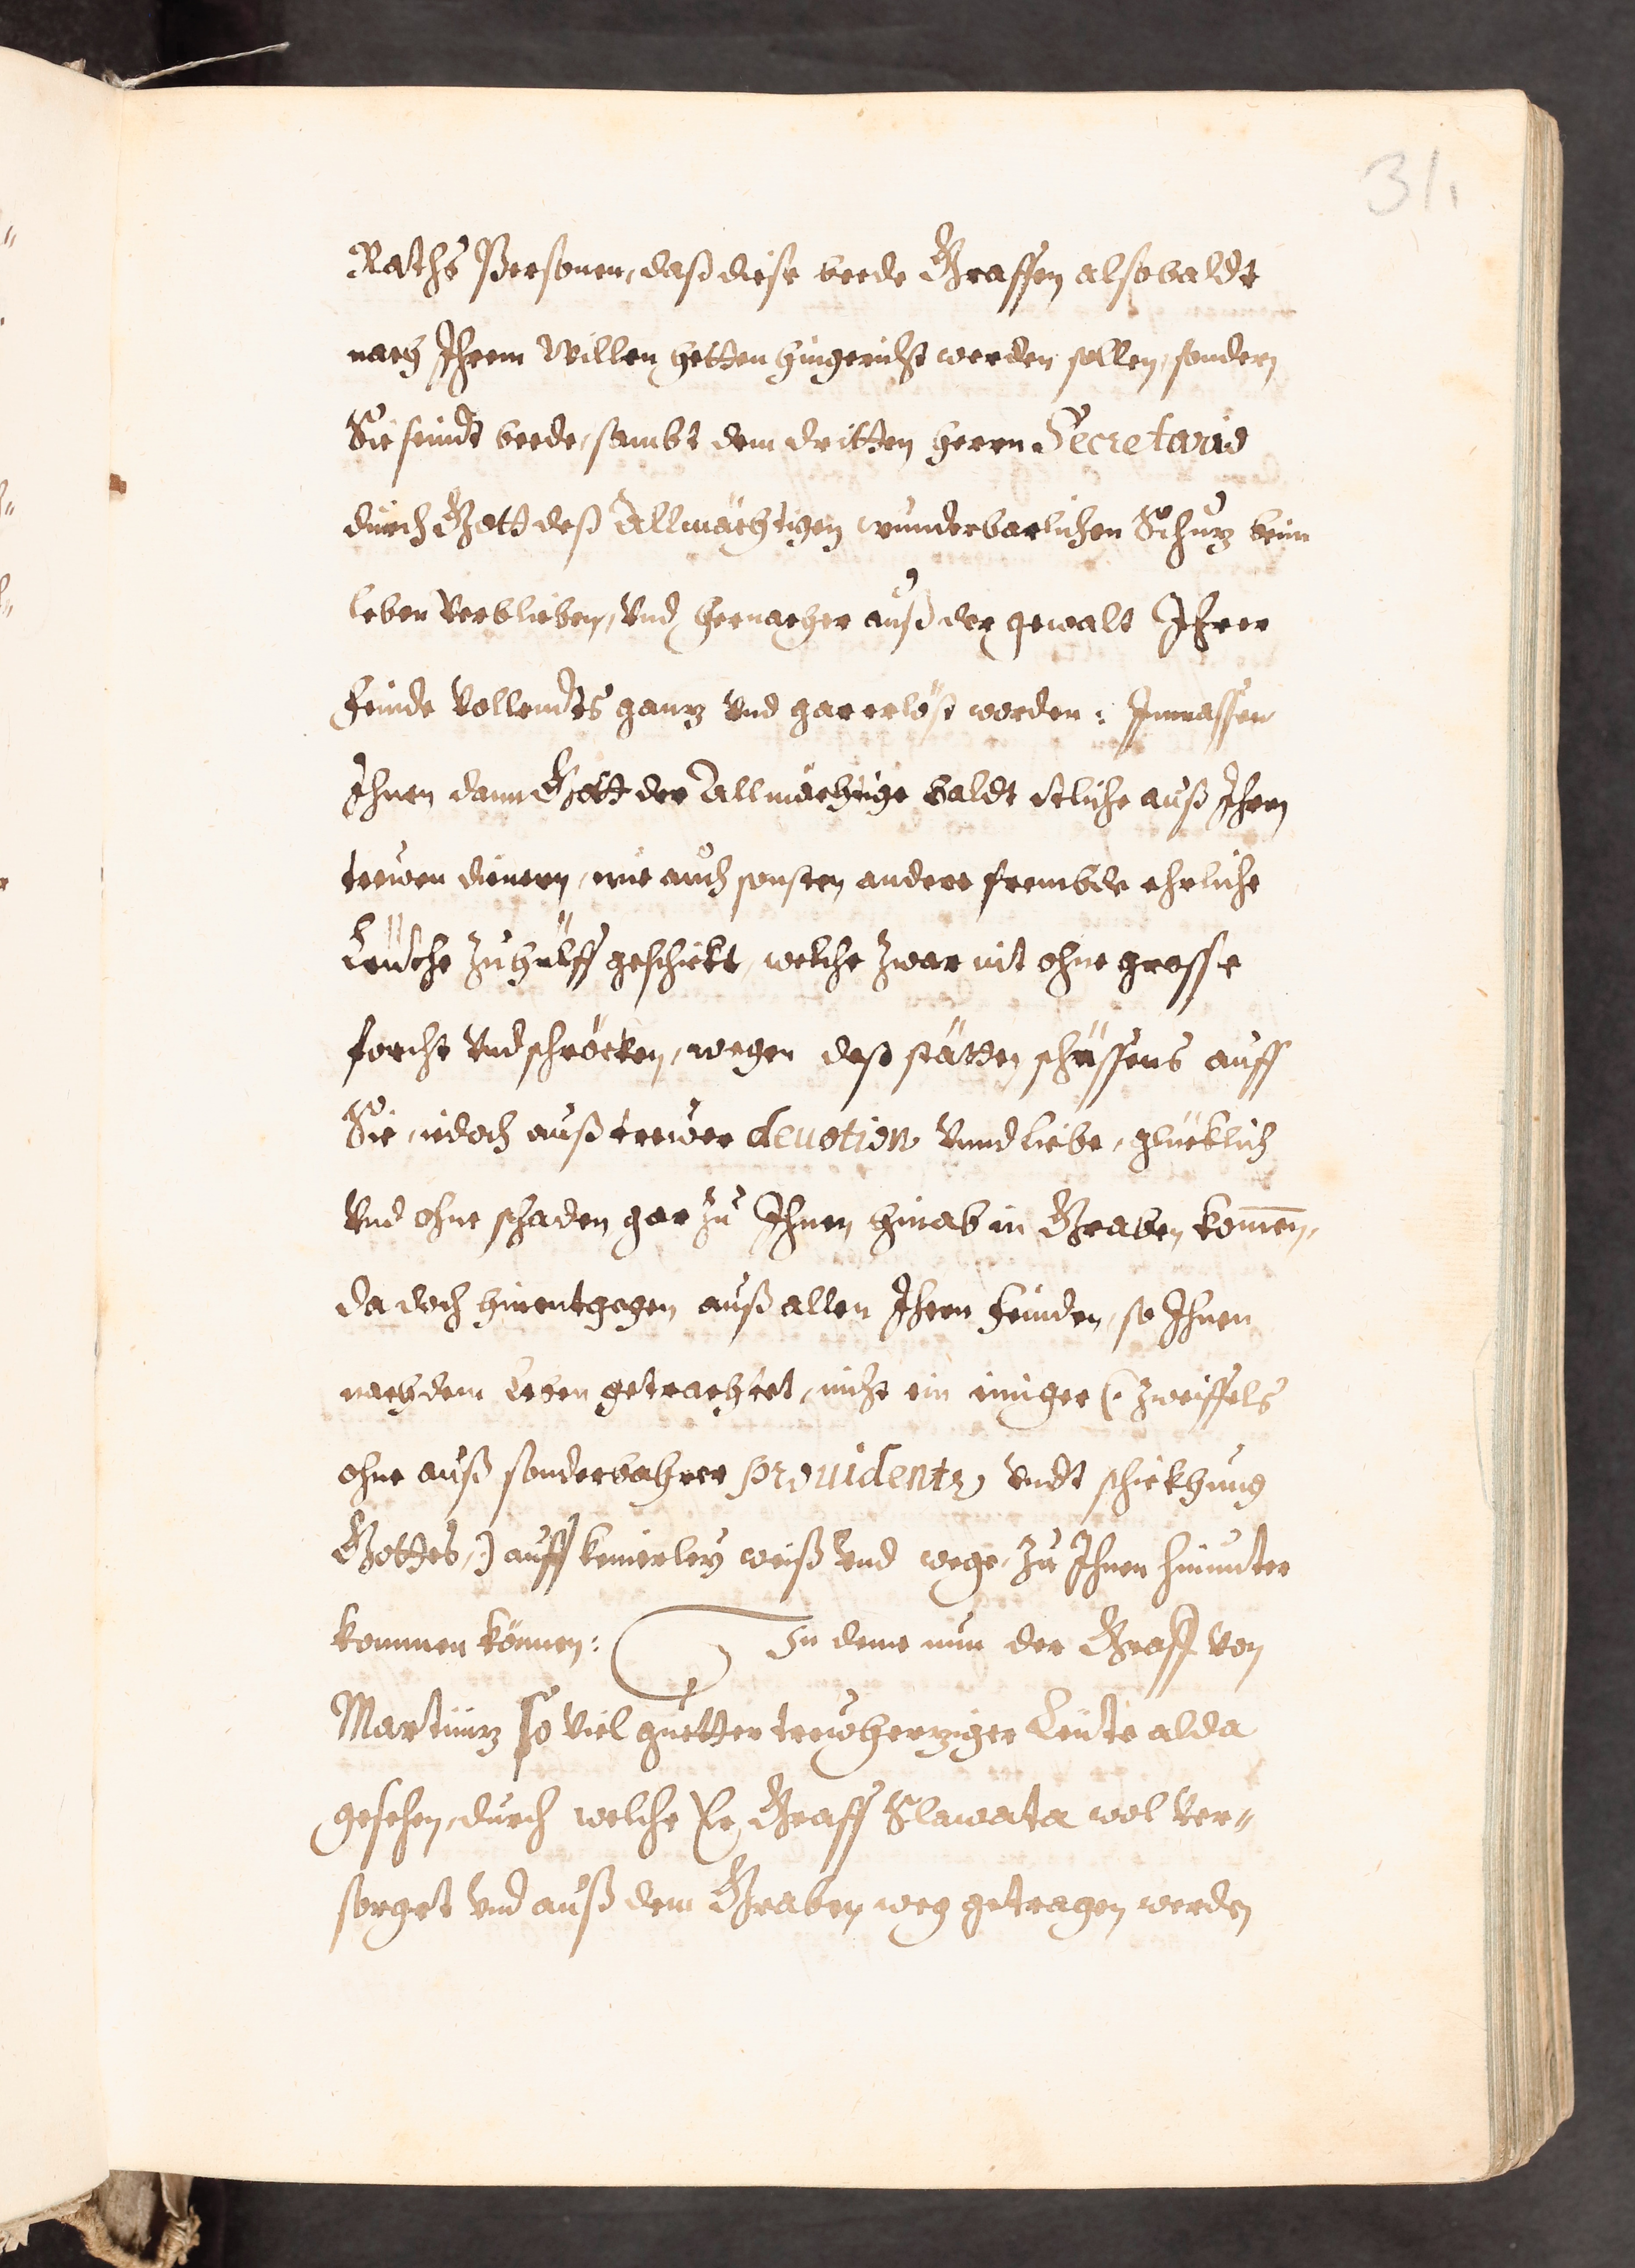 31.
Raths Persohnen, daß diese beede Graffen alsobaldt
nach Ihrem Willen hetten hingericht werden sollen, sondern
Sie seindt beede, sambt dem dritten herrn Secretario
durch Gott deß Allmächtigen wunderbarlichen Schuz beim
leben verblieben, vnd hernacher auß der gewalt Ihrer
feinde vollendts ganz vnd gar erlöst worden: Inmassen
Ihnen dann Gott der Allmächtige baldt etliche auß Ihren
treuen dienern, wie auch sonsten andere frembde ehrliche
Leüthe zu hülff geschickt, welche zwar nit ohne grosse
forcht vnd schröcken, wegen deß stätten schüssens auff
Sie, iedoch auß treuer deuotion vnnd liebe, glücklich
vnd ohne schaden gar zu Ihnen hinab in Graben kom̄en,
da doch hinentgegen auß allen Ihren feinden, so Ihnen
nach dem Leben getrachtet, nicht ein einiger (: zweiffels
ohne auß sonderbahrer prouidentz vndt schickhung
Gottes,:) auff keinerley weiß vnd wege, zu Ihnen hinunter
kommen können: In deme nun der Graff von
Martiniz so viel guetter treuherziger Leüte alda
gesehen, durch welche Er, Graff Slawata wol ver=
sorget vnd auß dem Graben weg getragen werden